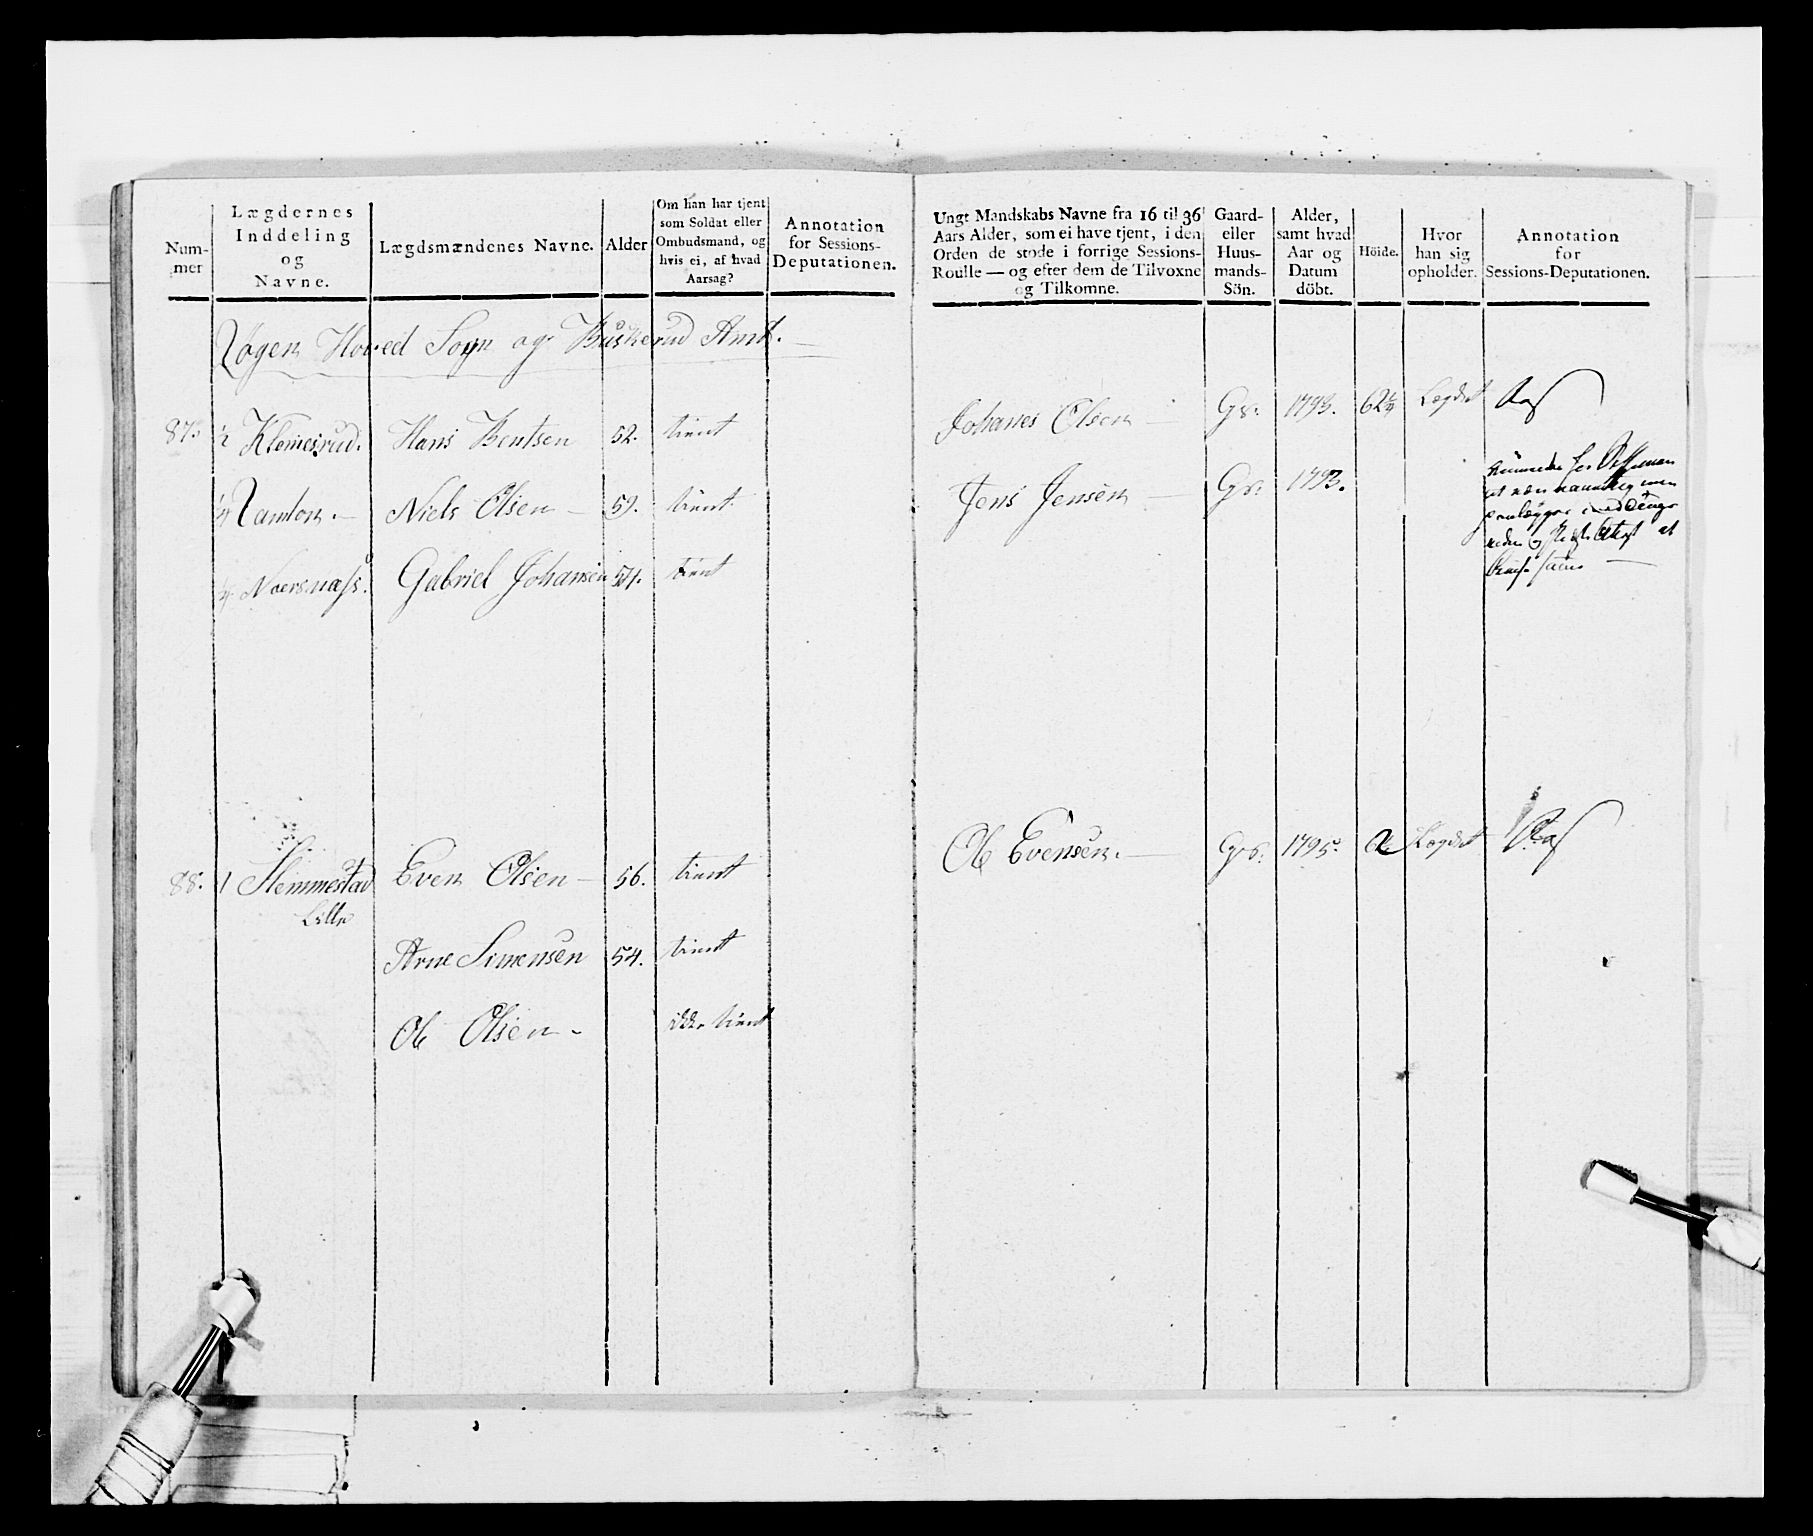 Num-
mer
Lægdernes
Inddeling
og
Navne.
Lægdsmændenes Navne.
Alder
Om han har tjent
som Soldat eller
Ombudsmand, og
hvis ei, af hvad
Aarsag?
Annotation
for Sessions-
Deputationen.
Røgen Hoved Sogn og Buskerud Amt.
87. ½ Klemesrud. Hans Bentsen 52. tient
¼ Ramton. Niels Olsen 59. tient
¼ Naersnæss. Gabriel Johansen 54. tient
88. 1 Slemmestad Even Olsen 56. tient
Lille
Arne Simensen 54. tient
Ole Olsen ikke tient
Ungt Mandskabs Navne fra 16 til 36
Aars Alder, som ei have tjent, i den
Orden de stode i forrige Sessions-
Roulle — og efter dem de Tilvoxne
og Tilkomne.
Gaard-
eller
Huus-
mands-
Sön.
Alder,
samt hvad
Aar og
Datum
döbt.
Höide.
Hvor
han sig
opholder.
Annotation
for
Sessions-Deputationen.
Johanes Olsen Gs. 1793. 62¾ Lægdet
Jens Jensen Gs. 1793.
Ole Evensen. Gs. 1795. Lægdet